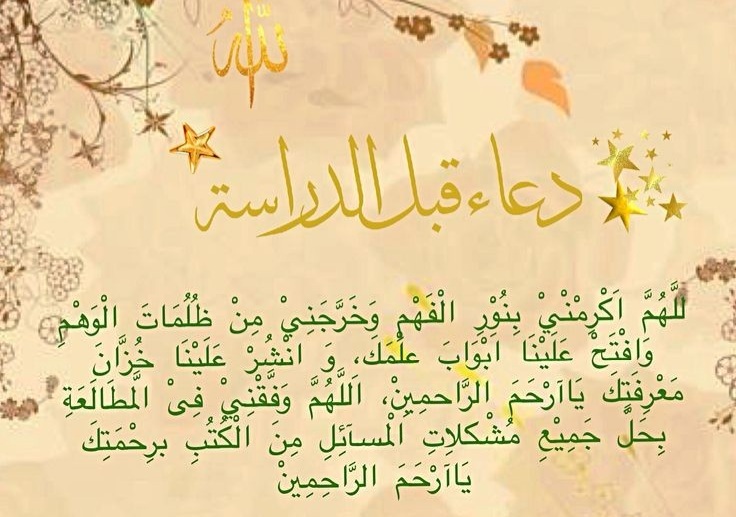 لله
دعاء قبل الدراسة
للَّهُمَّ اَكْرِمْنْيْ بِنُوْرِ الْفَهْمِ وَخَرَّجَنِيْ مِنْ ظُلُمَاتَ الْوَهْمِ
وَافْتَحْ عَلَيْنَا ابْوَابَ علْمَكَ، وَ انْشُرْ عَلَيْنَا خُزَّانَ
مَعْرِفَتِك يَااَرْحَمَ الرَّاحمِيِنْ، اَللَّهُمَّ وَفَّقْنيْ فِىْ الَّمطَالَعَةِ
بِحَلٍّ جَمِيْعِ مُشْكلاِتِ الْمسآَئِلِ مِنَ الْكُتُبِ برِحْمَتِكَ
يَااَرْحَمَ الرَّاحِمِيِنْ